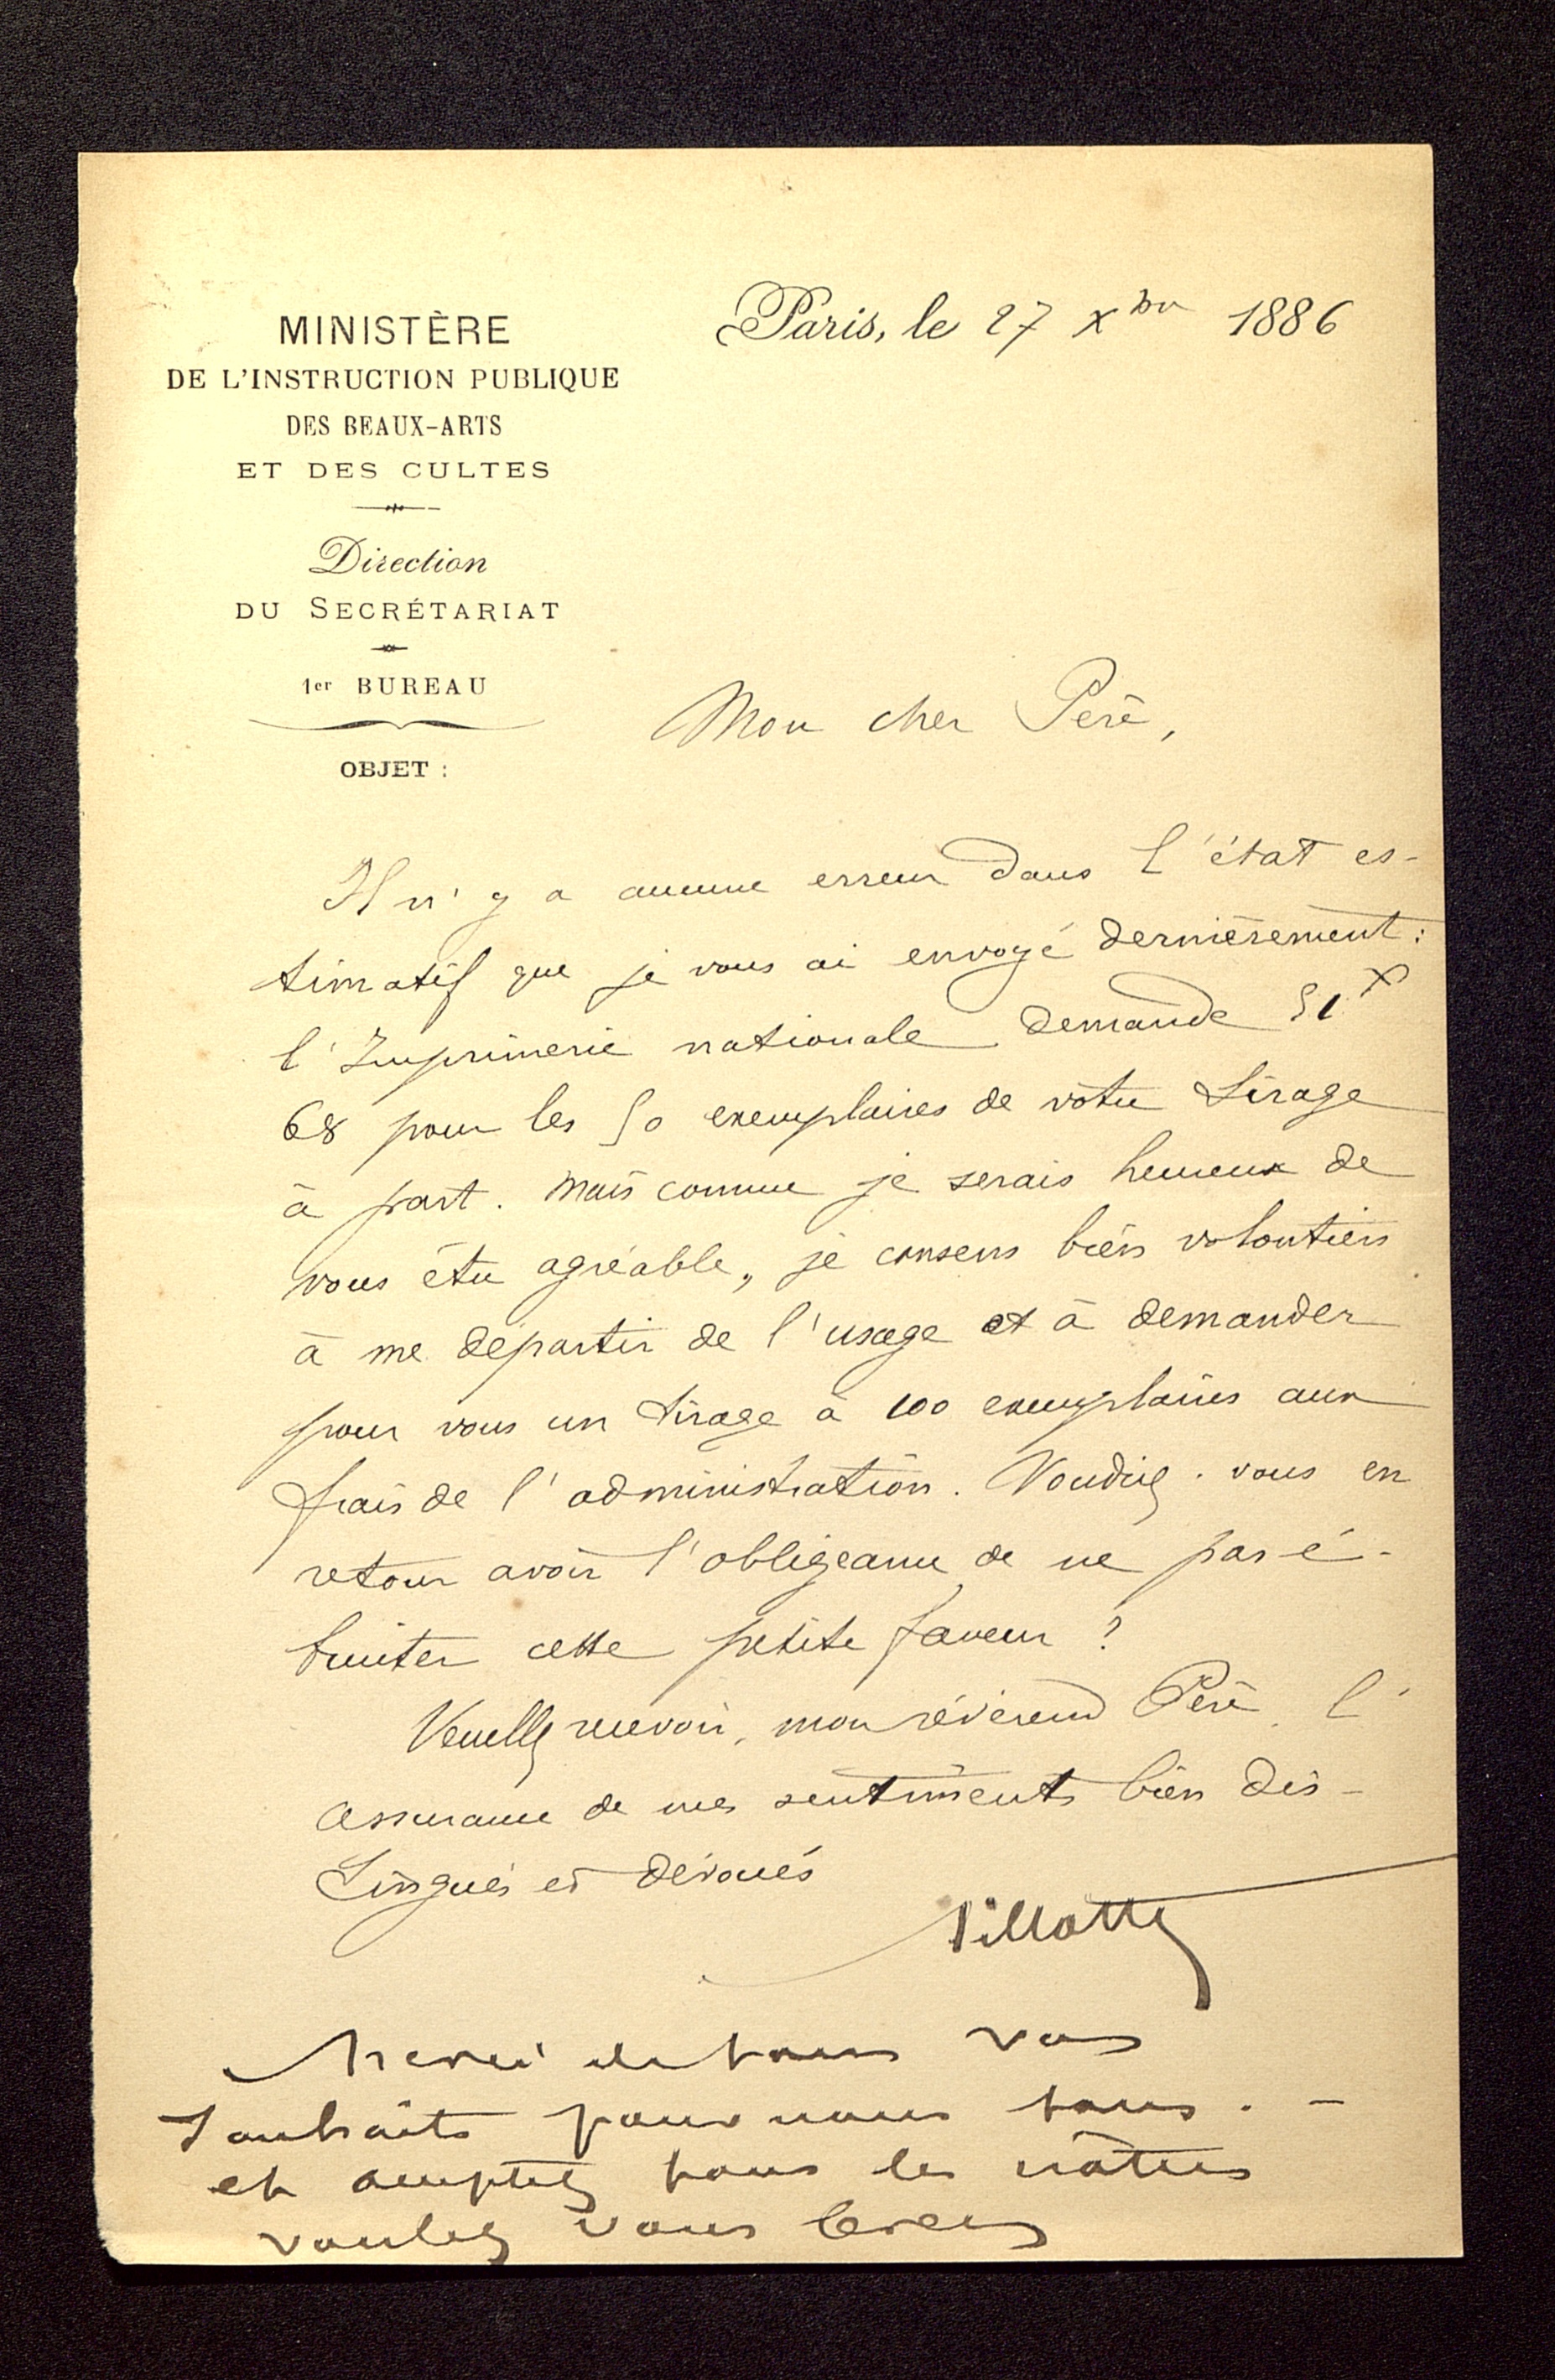 MINISTÈRE
DE L'INSTRUCTION PUBLIQUE
DES BEAUX-ARTS
ET DES CULTES
Direction
DU SECRÉTARIAT
1er BUREAU
OBJET :
Paris, le 27 Xbre 1886
Mon cher Père,
Il n'y a aucune erreur dans l'état es-
timatif que je vous ai envoyé dernièrement :
l'Imprimerie nationale demande 51 f
68 pour les 50 exemplaires de votre tirage
à part. Mais comme je serais heureux de
vous être agréable, je consens bien volontiers
à me départir de l'usage et à demander
pour vous un tirage à 100 exemplaires aux
frais de l'administration. Voudriez-vous en
retour avoir l'obligeance de ne pas é-
bruiter cette petite faveur ?
Veuillez recevoir, mon révérend Père, l'
assurance de mes sentiments bien dis-
tingués et dévoués
Merci de tous vos
souhaits pour nous tous. -
et acceptez tous les nôtres
voulez vous